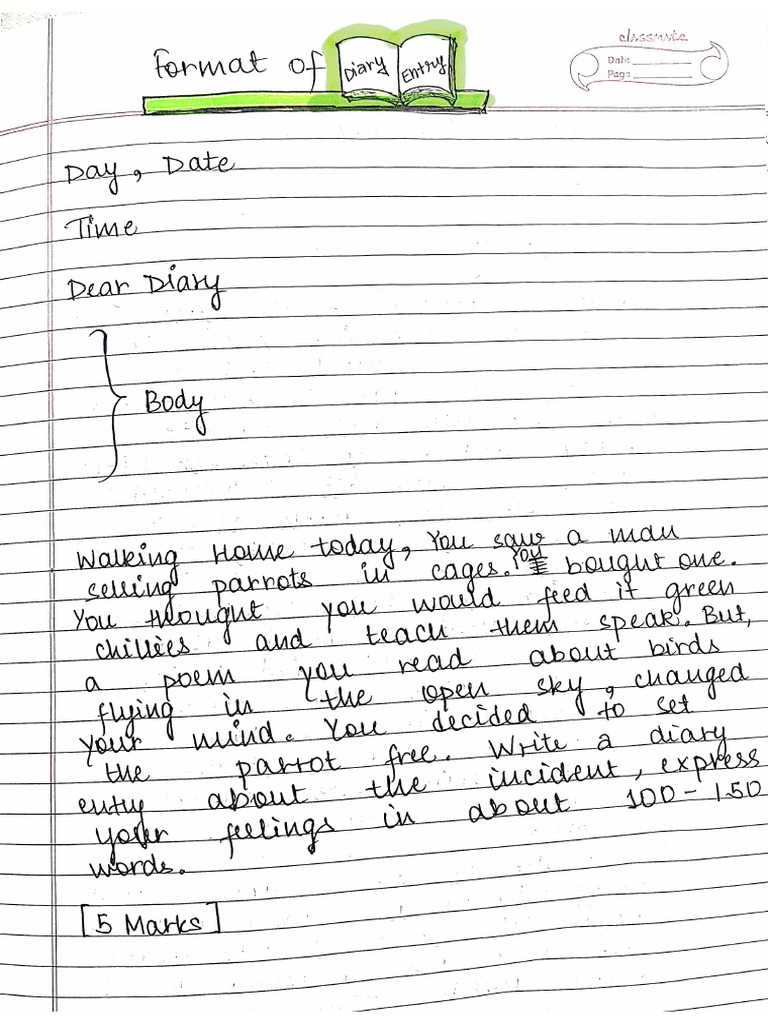 Format of Diary Entry
classmate
Date
Page
Day, Date
Time
Dear Diary
Body
Walking Home today, You saw a man
selling parrots in cages. You bought one.
You thought you would feed it green
chillies and teach them speak. But,
a poem you read about birds
flying in the open sky, changed
your mind. You decided to set
the parrot free. Write a diary
entry about the incident, express
your feelings in about 100-150
words.
[5 Marks]